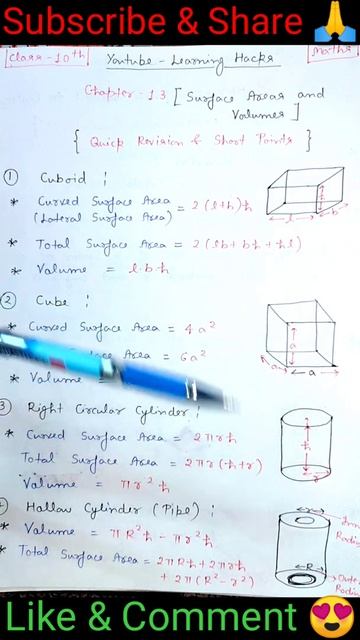 Subscribe & Share 🙏
Class-10th Youtube - Learning Hacks Maths
Chapter-13 [Surface Areas and
Volumes]
{ Quick Revision & Short Points }
① Cuboid :
* Curved Surface Area
(Lateral Surface Area) = 2(l+h)h
* Total Surface Area = 2(lb+bh+hl)
* Volume = l.b.h
② Cube :
* Curved Surface Area = 4a²
Surface Area = 6a²
* Volume =
③ Right Circular Cylinder :
* Curved Surface Area = 2πrh
Total Surface Area = 2πr(h+r)
Volume = πr²h
Hallow Cylinder (Pipe) :
* Volume = πR²h - πr²h
* Total Surface Area = 2πRh+2πrh
+ 2π(R²-r²)
h
l
b
a
a
a
r
h
r
R
Like & Comment 😍